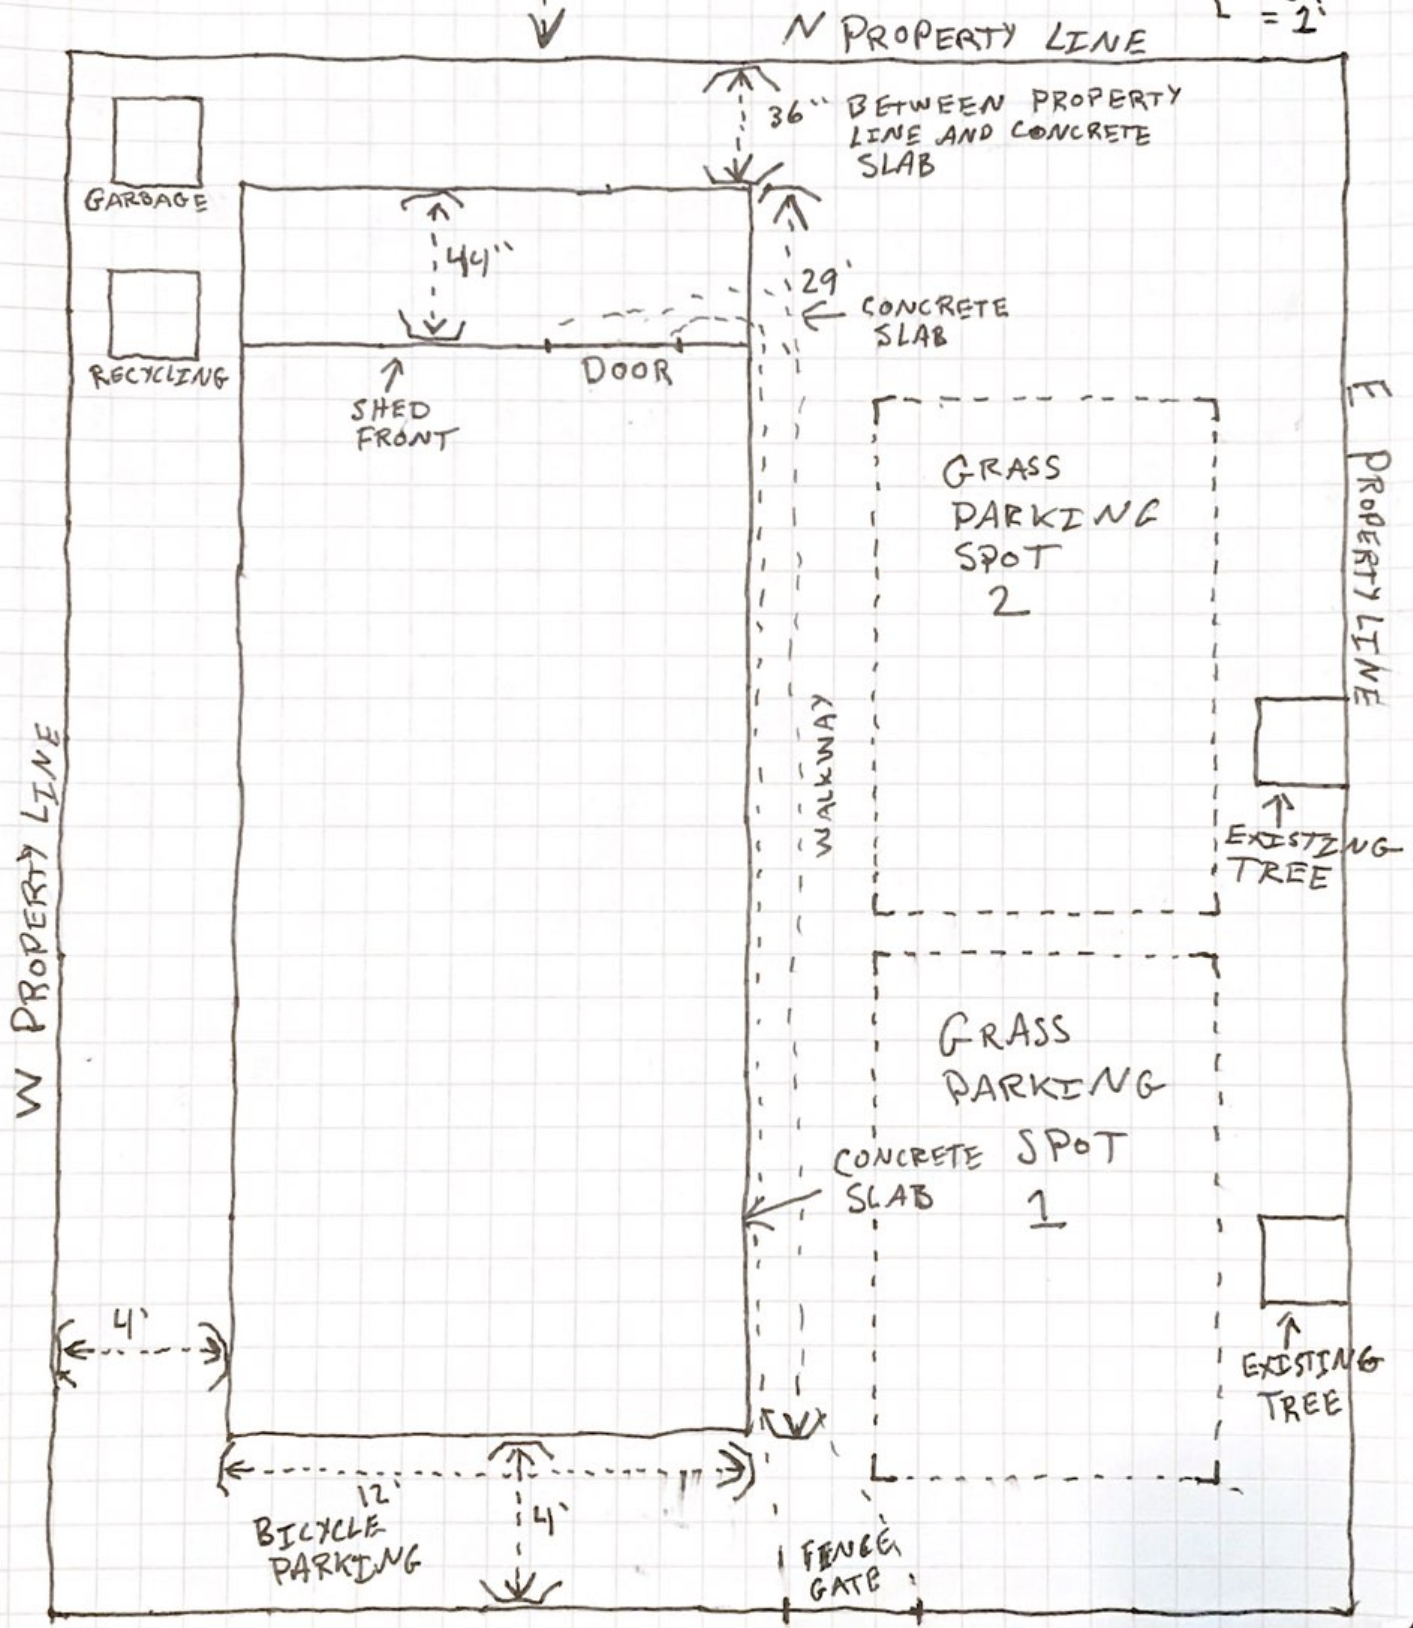 = 1'
N PROPERTY LINE
36" BETWEEN PROPERTY
LINE AND CONCRETE
SLAB
GARBAGE
44"
29'
CONCRETE
SLAB
RECYCLING
DOOR
SHED
FRONT
E PROPERTY LINE
GRASS
PARKING
SPOT
2
WALKWAY
W PROPERTY LINE
EXISTING
TREE
GRASS
PARKING
SPOT
1
CONCRETE
SLAB
4'
EXISTING
TREE
12'
BICYCLE
PARKING
4'
FENCE
GATE